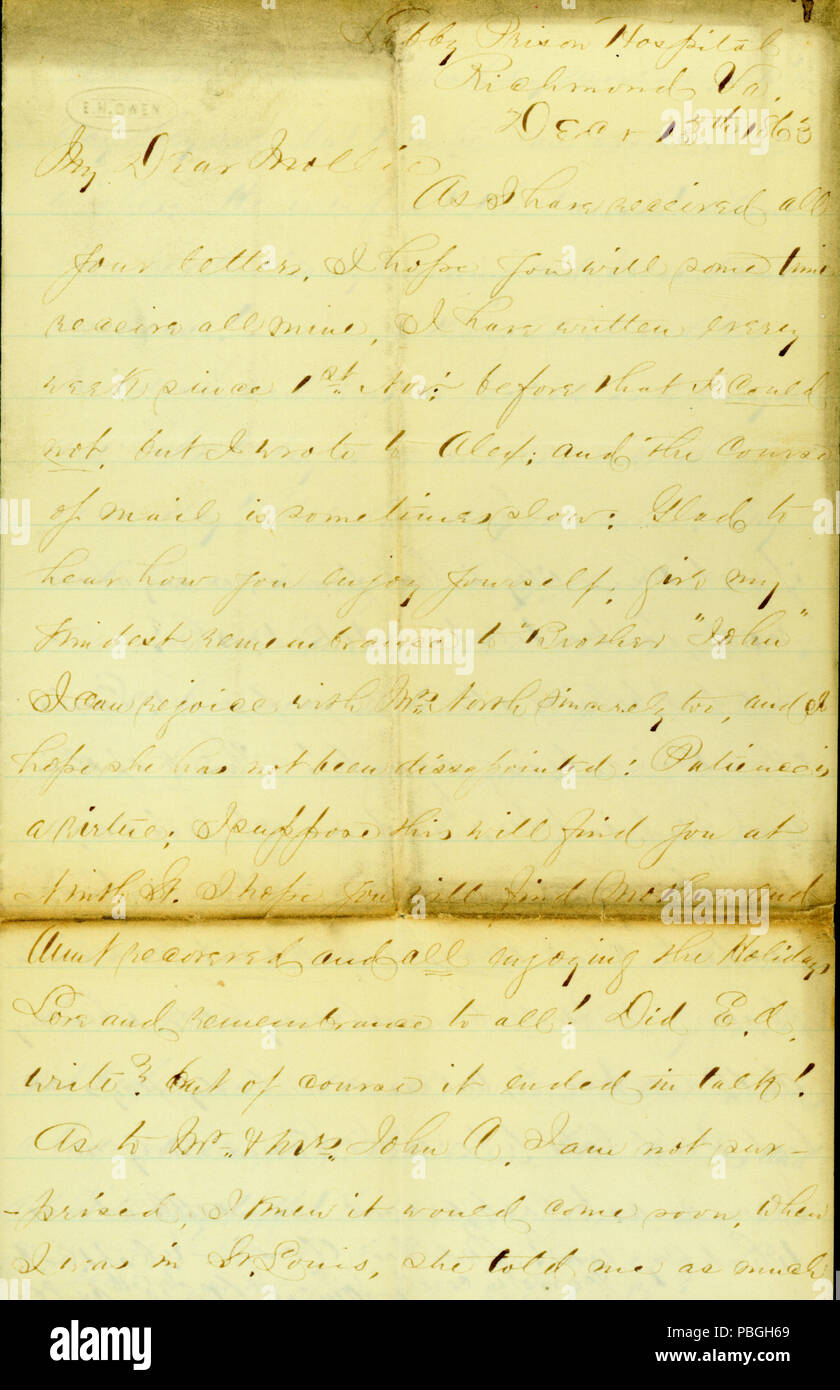 E.H.OWEN
Libby Prison Hospital
Richmond Va.
Decr 13th 1863
My Dear Mollie
As I have received all
your letters, I hope you will some time
receive all mine, I have written every
week since 1st Nov: before that I could
not, but I wrote to Alex; and the course
of mail is sometimes slow: Glad to
hear how you enjoy yourself, give my
kindest remembrance to "Brother "John"
I can rejoice with Mrs North sincerely too, and I
hope she has not been dissapointed: Patience is
a virtue; I suppose this will find you at
Ninth St. I hope you will find Mother and
Aunt recovered and all enjoying the Holidays
Love and remembrance to all! Did E. A.
write? but of course it ended in talk!
As to Mr. & Mrs. John A. I am not sur-
-prised, I knew it would come soon, when
I was in St. Louis, she told me as much
alamy
alamy
Image ID: PBGH69
www.alamy.com